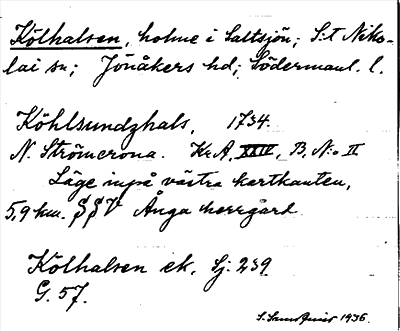 Kölhalsen, holme i Saltsjön; S:t Niko-
lai sn; Jönåkers hd; Södermanl. l.
Köhlsundzhals, 1734.
N. Strömcrona. Kr. A, XXIV, B, N:o II
Läge inpå västra kartkanten,
5,9 km. SSV Ånga herrgård
Kölhalsen ek. Sj: 239
G. 57.
1936.